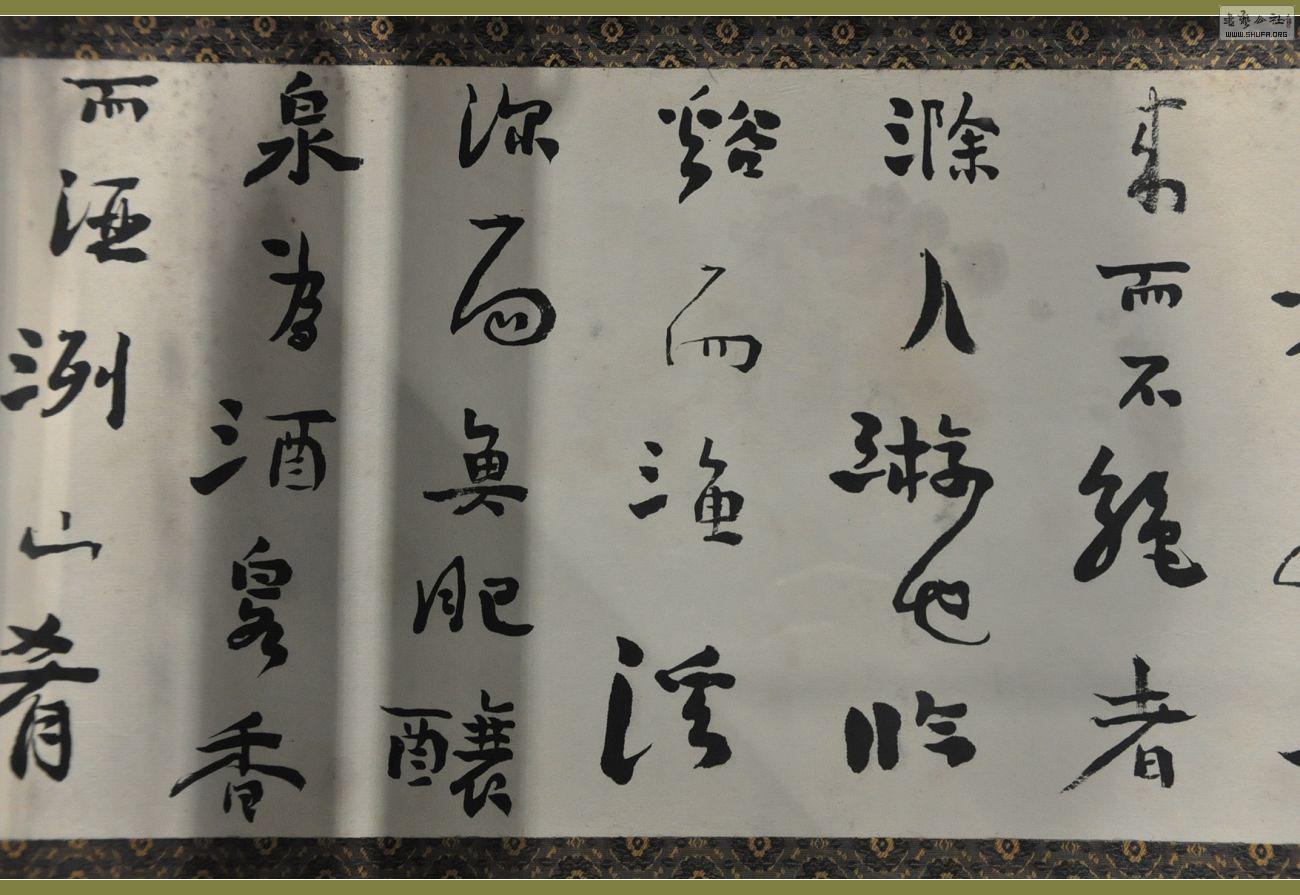 來而不絶者
滁人游也臨
谿而漁溪
深而魚肥釀
泉為酒泉香
而酒洌山肴
書藝公社
WWW.SHUFA.ORG